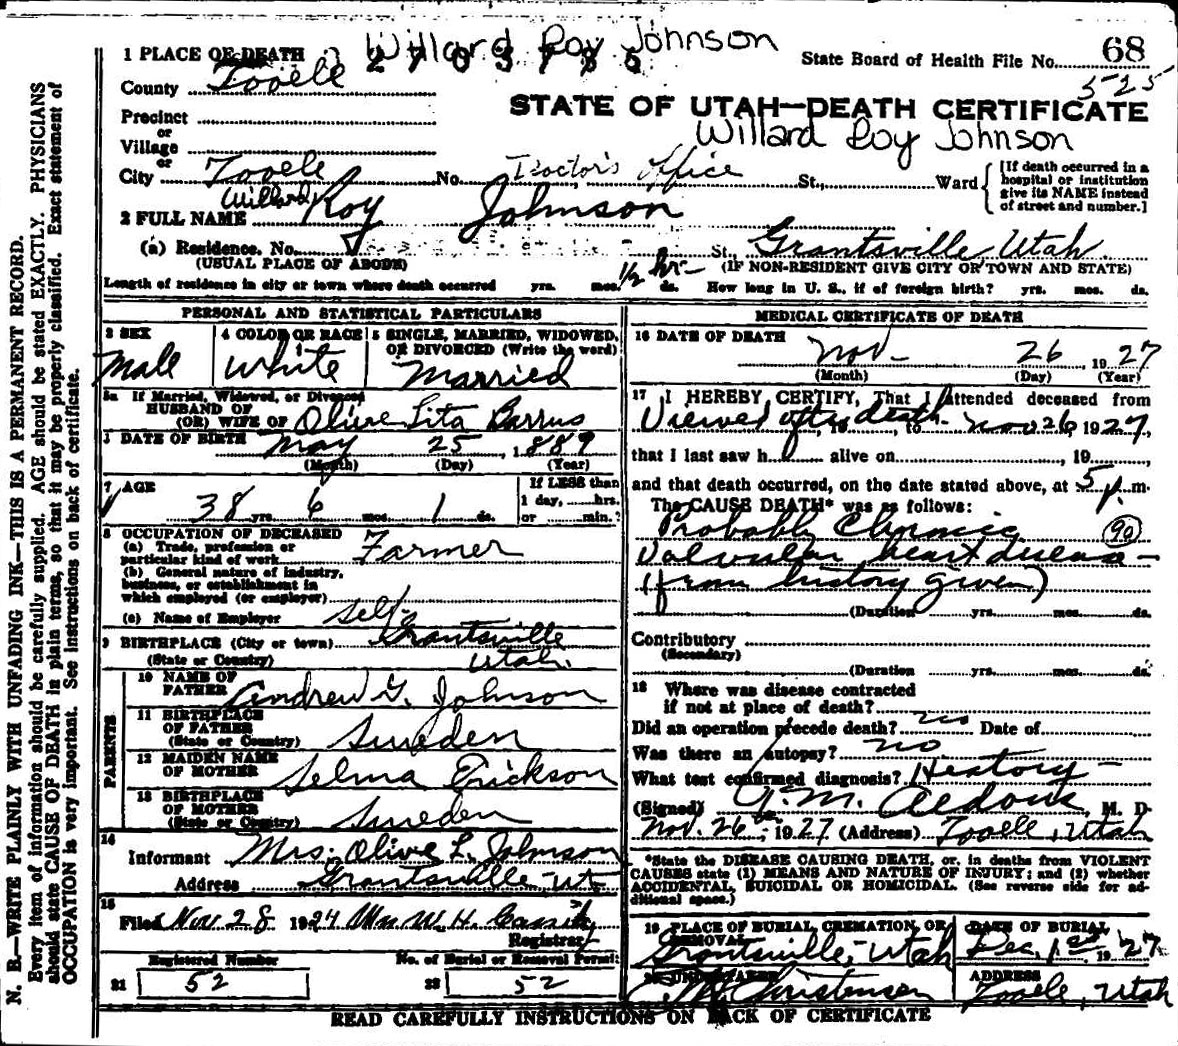 Willard Roy Johnson
1 PLACE OF DEATH
State Board of Health File No. 68
525
County Tooele
STATE OF UTAH—DEATH CERTIFICATE
Precinct
or
Willard Roy Johnson
Village
or
City Tooele No. Doctor's Office St., Ward
[If death occurred in a hospital or institution give its NAME instead of street and number.]
Willard
2 FULL NAME Roy Johnson
(a) Residence. No. St. Grantsville, Utah.
(USUAL PLACE OF ABODE) (IF NON-RESIDENT GIVE CITY OR TOWN AND STATE)
Length of residence in city or town where death occurred yrs. mos. 1/2 hr. ds. How long in U. S., if of foreign birth? yrs. mos. ds.
PERSONAL AND STATISTICAL PARTICULARS
3 SEX
Male
4 COLOR OR RACE
White
5 SINGLE, MARRIED, WIDOWED, OR DIVORCED (Write the word)
Married
5a If Married, Widowed, or Divorced
HUSBAND OF
(OR) WIFE OF Olive Lita Barrus
DATE OF BIRTH May 25, 1889
(Month) (Day) (Year)
7 AGE
38 yrs. 6 mos. 1 ds.
If LESS than
1 day, hrs.
or min.?
8 OCCUPATION OF DECEASED
(a) Trade, profession or
particular kind of work Farmer
(b) General nature of industry,
business, or establishment in
which employed (or employer)
(c) Name of Employer Self
9 BIRTHPLACE (City or town) Grantsville
(State or Country) Utah.
PARENTS
10 NAME OF
FATHER Andrew G. Johnson
11 BIRTHPLACE
OF FATHER
(State or Country) Sweden
12 MAIDEN NAME
OF MOTHER Selma Erickson
13 BIRTHPLACE
OF MOTHER
(State or Country) Sweden
14
Informant Mrs. Olive L. Johnson
Address Grantsville, Ut
15
Filed Nov 28 1924 Wm. W. H.
Registrar
Registered Number
21 52
No. of Burial or Removal Permit
22 52
MEDICAL CERTIFICATE OF DEATH
16 DATE OF DEATH
Nov. 26 1927
(Month) (Day) (Year)
17 I HEREBY CERTIFY, That I attended deceased from
Viewed after death, 19 to Nov 26, 1927,
that I last saw h alive on , 19
and that death occurred, on the date stated above, at 5 p.m.
The CAUSE DEATH* was as follows:
Probably Chronic 90
Valvular heart disease —
(from history given)
(Duration yrs. mos. ds.
Contributory
(Secondary)
(Duration yrs. mos. ds.
18 Where was disease contracted
if not at place of death?
Did an operation precede death? no Date of
Was there an autopsy? no
What test confirmed diagnosis? History —
(Signed) M. D.
Nov. 26, 1927 (Address) Tooele, Utah
*State the DISEASE CAUSING DEATH, or, in deaths from VIOLENT
CAUSES state (1) MEANS AND NATURE OF INJURY; and (2) whether
ACCIDENTAL, SUICIDAL OR HOMICIDAL. (See reverse side for ad-
ditional space.)
19 PLACE OF BURIAL, CREMATION, OR
REMOVAL
Grantsville, Utah
DATE OF BURIAL
Dec 1st 1927
20 UNDERTAKER
Christensen
ADDRESS
Tooele, Utah
READ CAREFULLY INSTRUCTIONS ON BACK OF CERTIFICATE
N. B.—WRITE PLAINLY WITH UNFADING INK—THIS IS A PERMANENT RECORD.
Every item of information should be carefully supplied. AGE should be stated EXACTLY. PHYSICIANS
should state CAUSE OF DEATH in plain terms, so that it may be properly classified. Exact statement of
OCCUPATION is very important. See instructions on back of certificate.